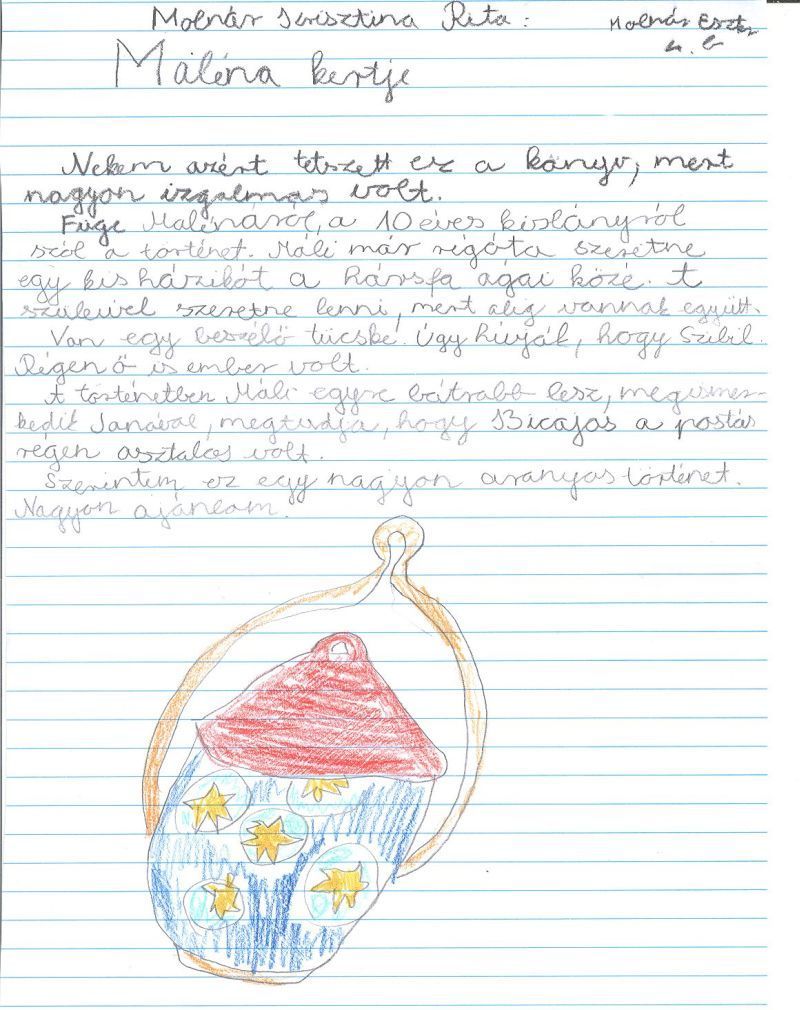 Molnár Krisztina Rita:
Molnár Eszter
4. b
Maléna kertje
Nekem azért tetszett ez a könyv, mert
nagyon izgalmas volt.
Füge Malénáról, a 10 éves kislányról
szól a történet. Máli már régóta szeretne
egy kis házikót a hársfa ágai közé. A
szüleivel szeretne lenni, mert alig vannak együtt.
Van egy beszélő tücske. Úgy hívják, hogy Szibil.
Régen ő is ember volt.
A történetben Máli egyre bátrabb lesz, megismer-
kedik Janával, megtudja, hogy Bicajos a postás
régen asztalos volt.
Szerintem ez egy nagyon aranyos történet.
Nagyon ajánlom.